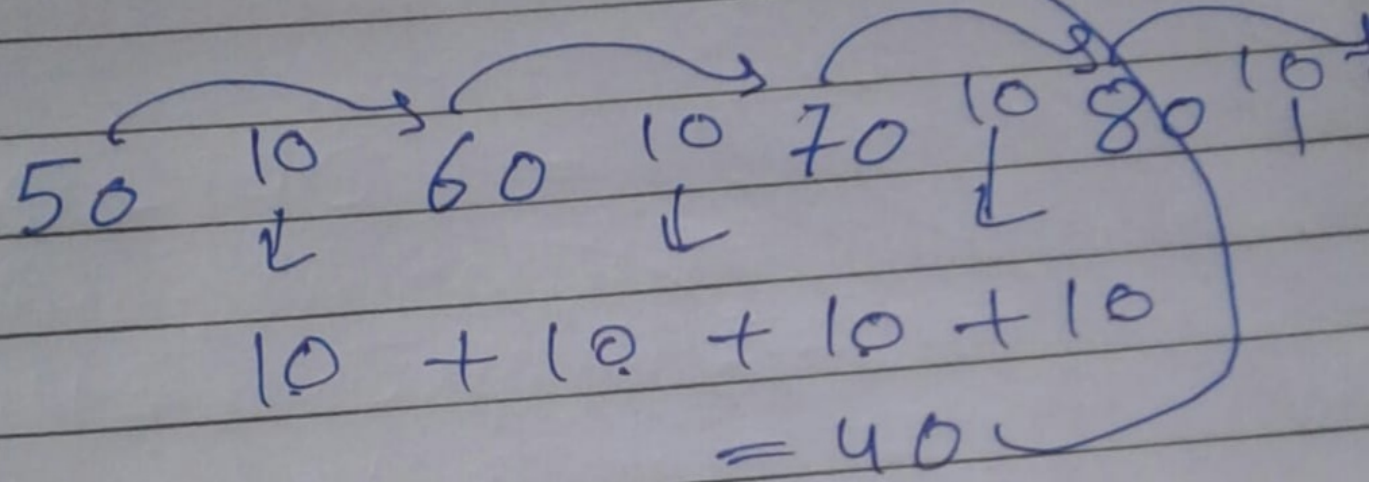 50 10 60 10 70 10 80 10
10 + 10 + 10 + 10
= 40